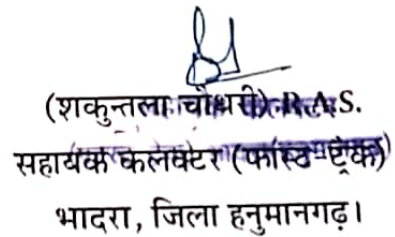 (शकुन्तला चौधरी) R.A.S.
सहायक कलक्टर (फास्ट-ट्रेक)
भादरा, जिला हनुमानगढ़।